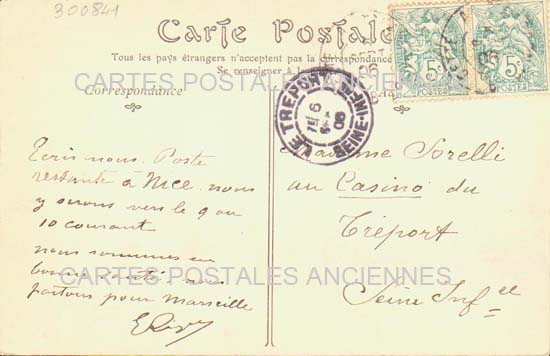 300841
Carte Postale
Tous les pays étrangers n'acceptent pas la correspondance
Se renseigner à la
Correspondance
5c
POSTES
5c
POSTES
06
LE TREPORT
6
06
SEINE-INFRE
CARTES POSTALES ANCIENNES
Ecris nous Poste
restante à Nice nous
y serons vers le 9 ou
10 courant
nous sommes en
bonne santé nous
partons pour Marseille
Madame Sorelli
au Casino du
Tréport
Seine Infce
CARTES POSTALES ANCIENNES